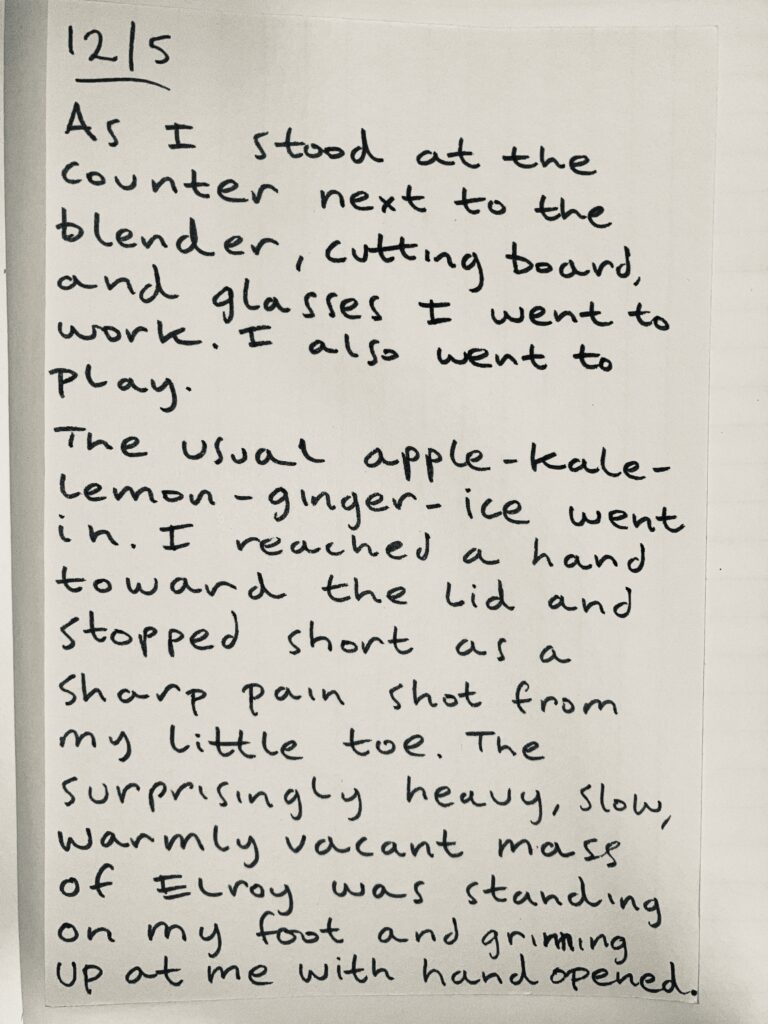 12/5
As I stood at the
counter next to the
blender, cutting board,
and glasses I went to
work. I also went to
play.
The usual apple-kale-
lemon-ginger-ice went
in. I reached a hand
toward the lid and
stopped short as a
sharp pain shot from
my little toe. The
surprisingly heavy, slow,
warmly vacant mass
of Elroy was standing
on my foot and grinning
up at me with hand opened.